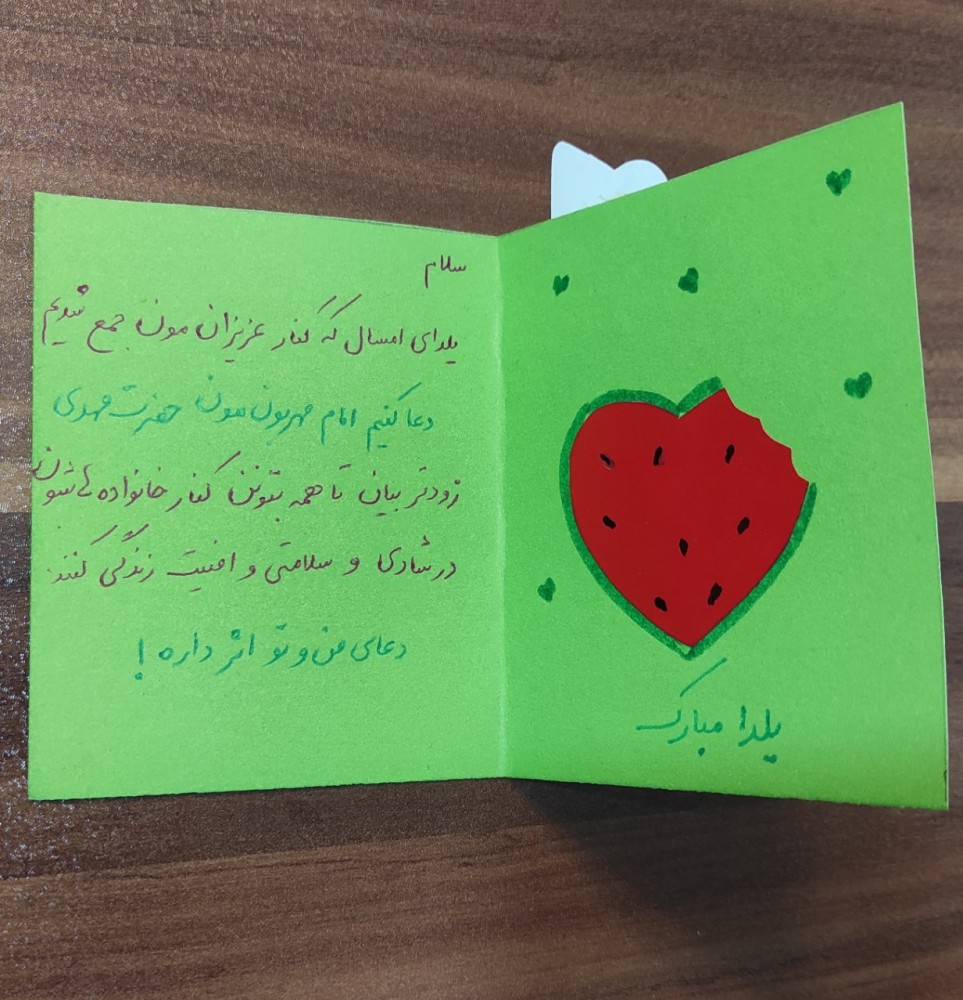 سلام
یلدای امسال که کنار عزیزان مون جمع شدیم
دعا کنیم امام مهربون مون حضرت مهدی
زودتر بیان تا همه بتونن کنار خانواده هاشون
در شادی و سلامتی و امنیت زندگی کنند.
دعای من و تو اثر داره !
یلدا مبارک